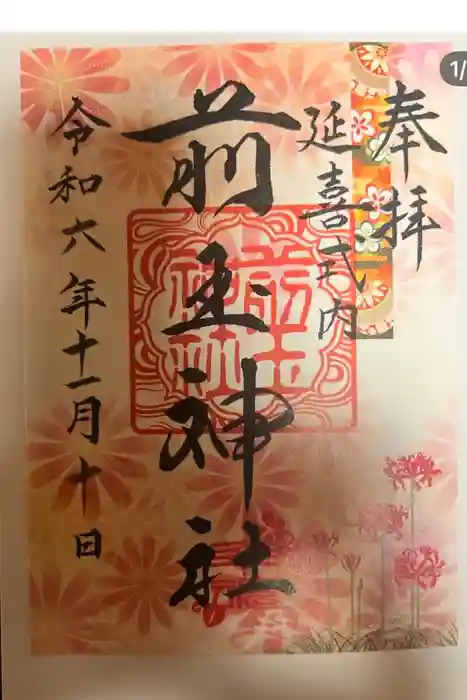 奉拝
延喜式内
前玉神社
前玉神社
令和六年十一月十日
1/